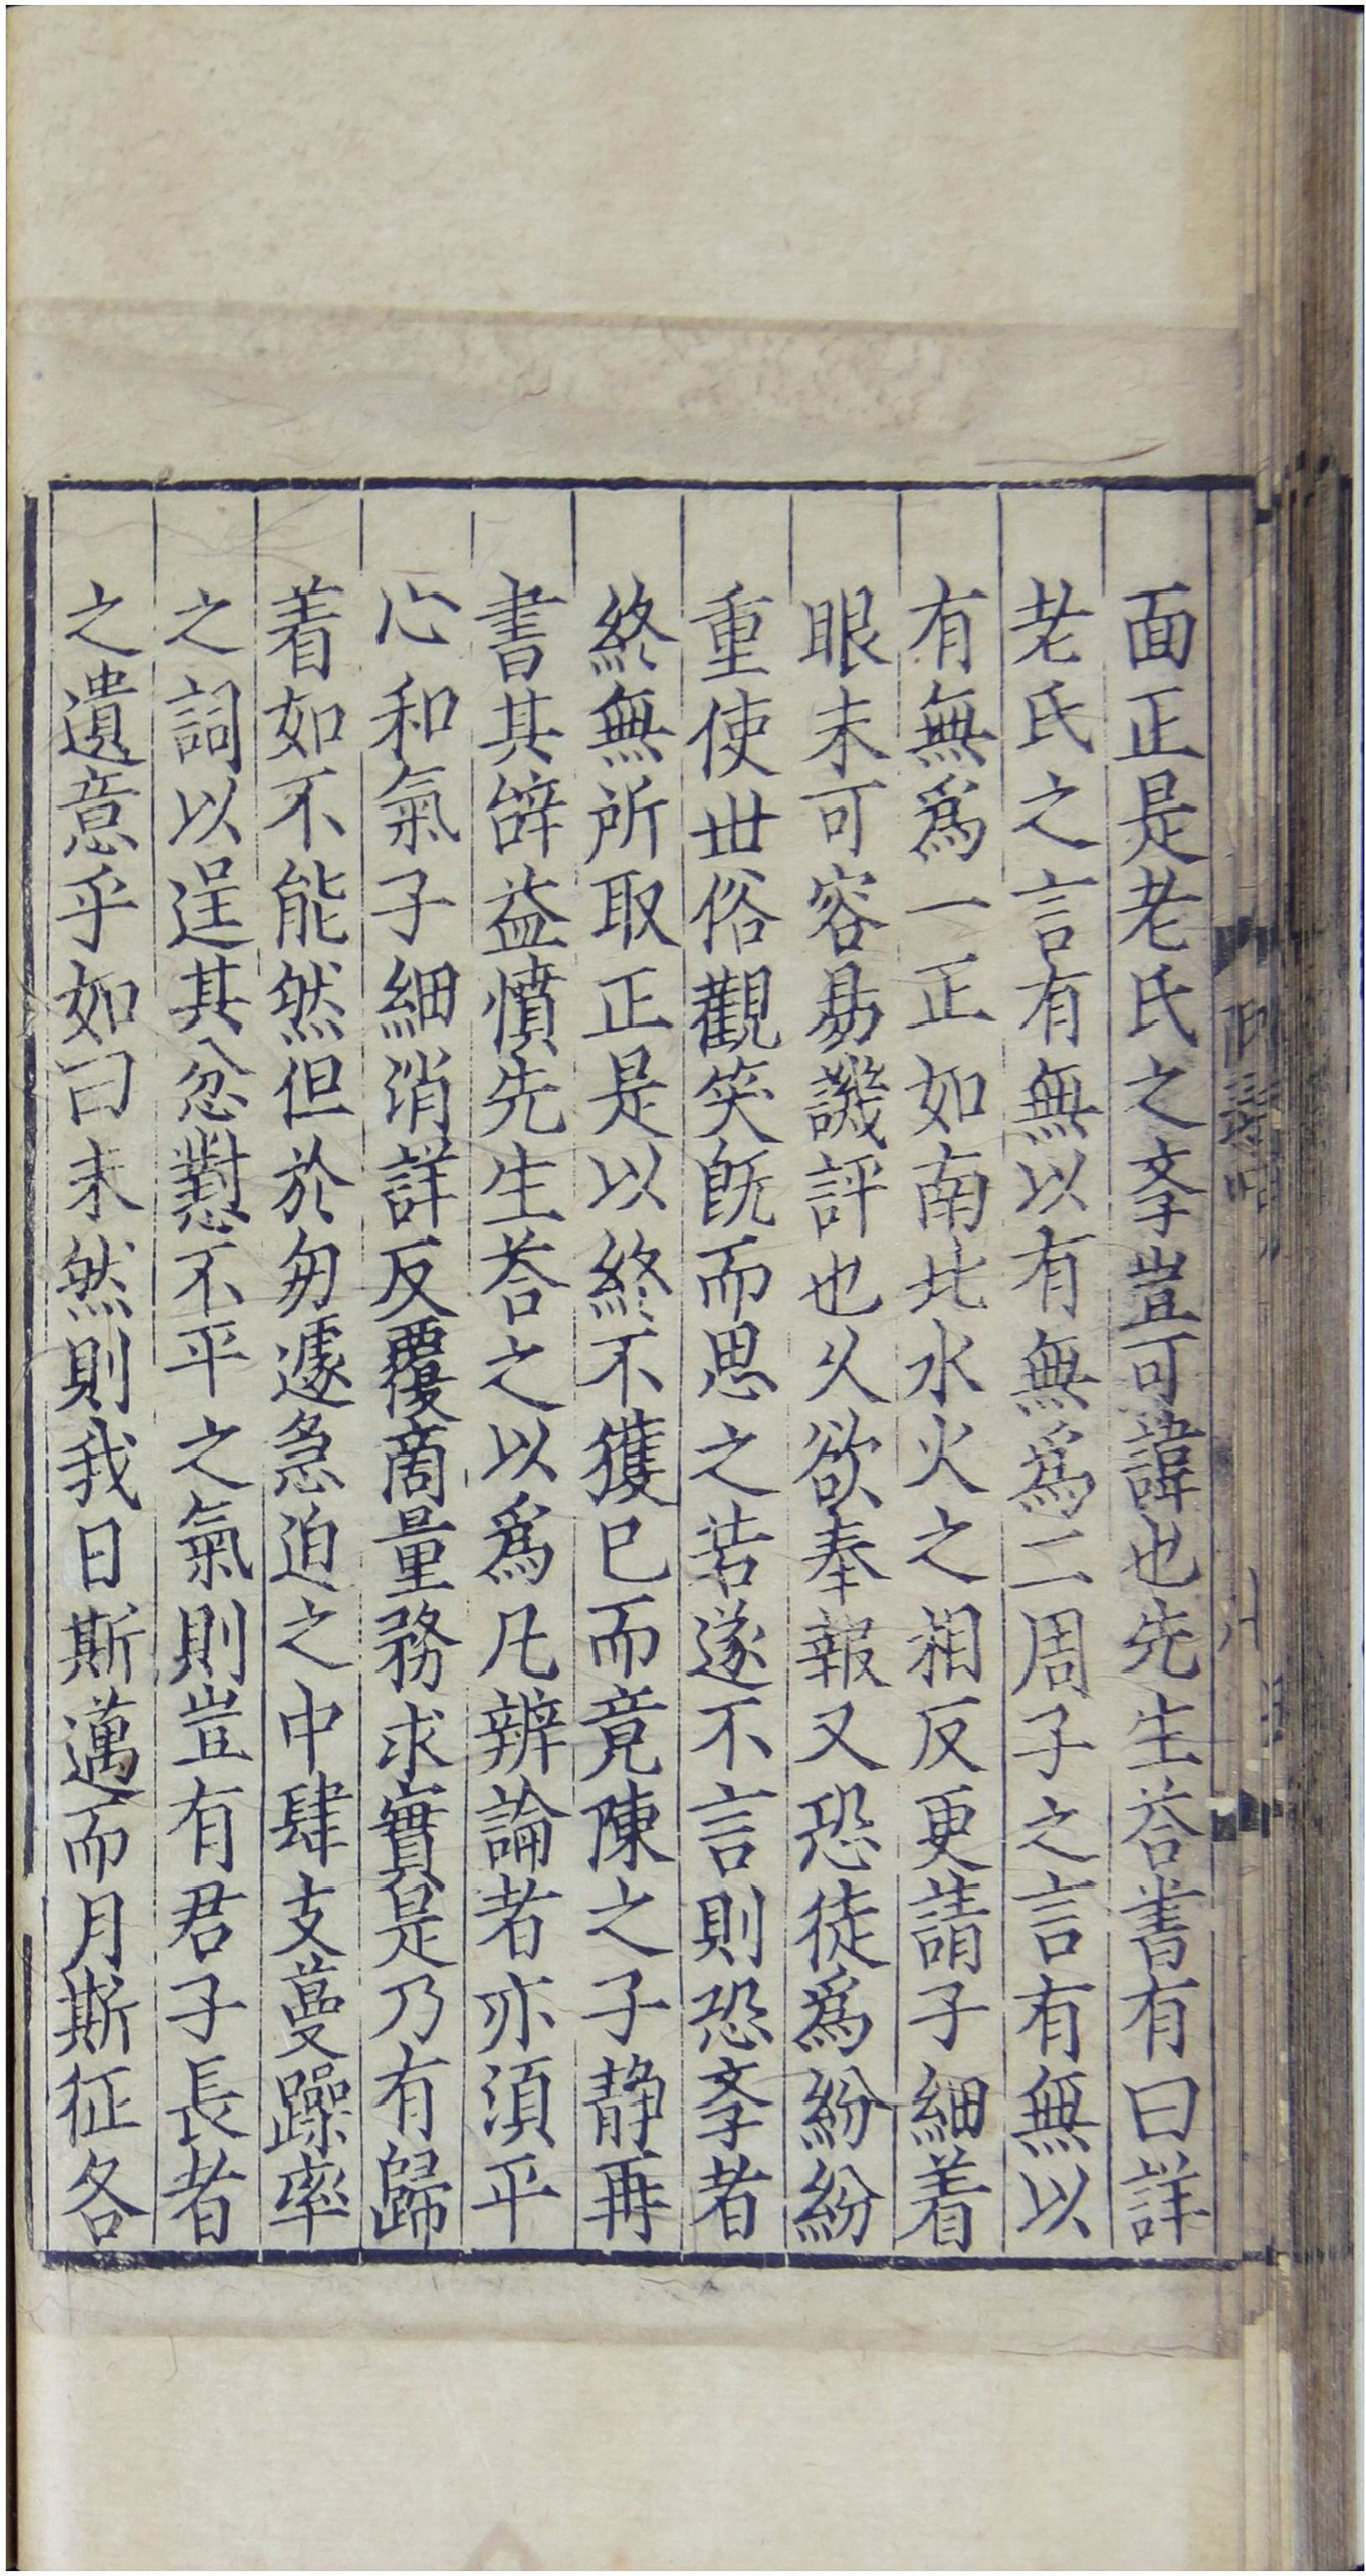 面正是老氏之斈豈可諱也先生荅書有曰詳
老氏之言有無以有無爲二周子之言有無以
有無爲一正如南北水火之相反更請子細着
眼未可容易譏評也乆欲奉報又恐徒爲紛紛
重使丗俗觀笑旣而思之若遂不言則恐斈者
終無所取正是以終不獲已而竟陳之子靜再
書其辭益憤先生荅之以爲凡辨論者亦須平
心和氣子細消詳反覆商量務求實是乃有歸
着如不能然但於匆遽急迫之中肆支蔓躁率
之詞以逞其忿懟不平之氣則豈有君子長者
之遺意乎如曰未然則我日斯邁而月斯征各